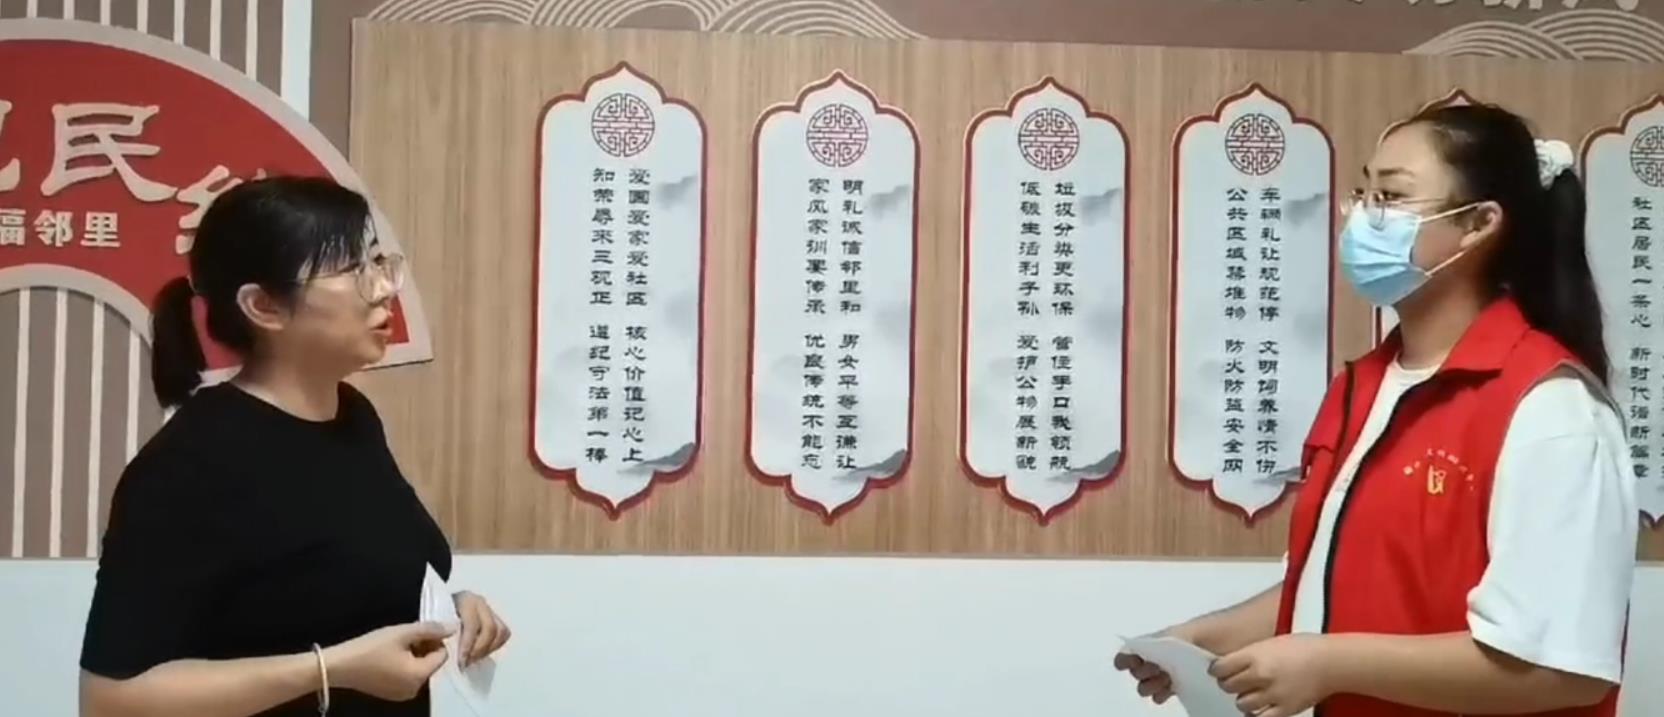 民
福邻里
爱国爱家爱社区 核心价值记心上
知荣辱来三观正 遵纪守法第一棒
明礼诚信邻里和 男女平等互谦让
家风家训要传承 优良传统不能忘
垃圾分类更环保 管住手口我领航
低碳生活利子孙 爱护公物展新貌
车辆礼让规范停 文明饲养情不伤
公共区域禁堆物 防火防盗安全网
社区居民一条心 新时代谱新篇章